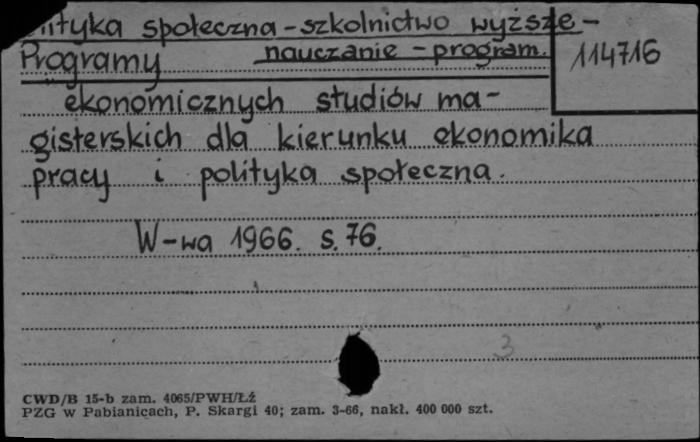 polityka społeczna - szkolnictwo wyższe -
nauczanie - program.
114716
Programy
ekonomicznych studiów ma-
gisterskich dla kierunku ekonomika
pracy i polityka społeczna.
W-wa 1966. S. 76.
3
CWD/B 15-b zam. 4065/PWH/Łź
PZG w Pabianicach, P. Skargi 40; zam. 3-66, nakł. 400 000 szt.